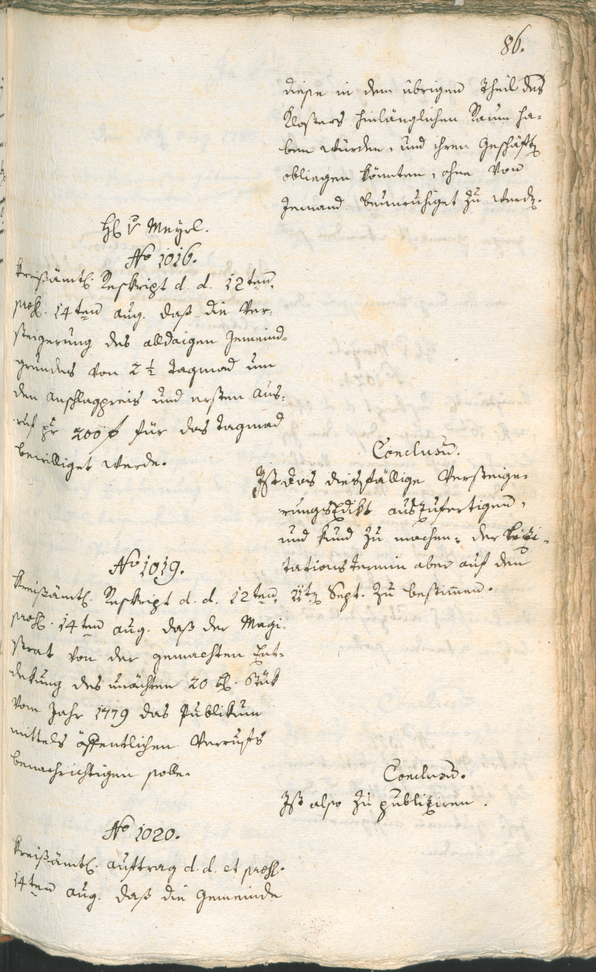 86.
diese in dem übrigen Theil des
Klosters hinlänglichen Raum ha-
ben würden, und ihren Geschäft
obliegen könnten, ohne von
Jemand beunruhiget zu werd.
H v Mayrl.
No 1016.
Kreisämtl. Reskript d. d. 12ten,
prs. 14ten Aug. daß die Ver-
steigerung des alldaigen Gemeind-
grundes von 2 1/2 Tagmad um
den Anschlagpreis und ersten Aus-
ruf pr 200 f für das Tagmad
bewilliget werde.
Conclusu.
Ist das diesfällige Versteige-
rungsEdikt auszufertigen,
und kund zu machen, der Lizi-
tationstermin aber auf den
Sept. zu bestimmen.
No 1019.
Kreisämtl. Reskript d. d. 12ten,
prs. 14ten Aug. daß der Magi-
strat von der gemachten Ent-
dekung des unächten 20 K. Stük
vom Jahr 1779 das Publikum
mittels öffentlichen Verrufs
benachrichtigen solle.
Conclusu.
Ist also zu publiziren.
No 1020.
Kreisämtl. Auftrag d. d. et prs.
14ten Aug. daß die Gemeinde